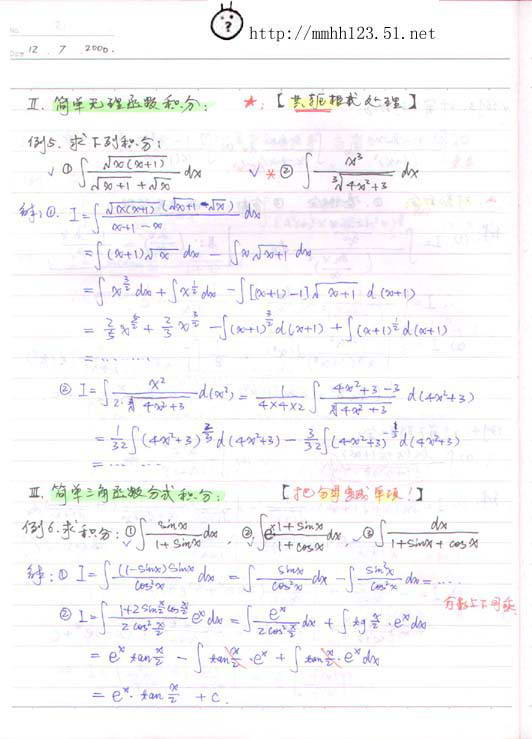 http://mmhh123.51.net
No. 2
Date 12 . 7 2000.
II. 简单无理函数积分: ★: 【共轭根式处理】
例5. 求下列积分:
√ ① ∫ √(x(x+1)) / (√(x+1) + √x) dx √ * ② ∫ x³ / ∛(4x²+3) dx
解: ①. I = ∫ √(x(x+1)) · (√(x+1) - √x) / (x+1-x) dx
= ∫ (x+1)√x dx - ∫ x√(x+1) dx
= ∫ x^(3/2) dx + ∫ x^(1/2) dx - ∫ [(x+1)-1]√(x+1) d(x+1)
= 2/5 x^(5/2) + 2/3 x^(3/2) - ∫ (x+1)^(3/2) d(x+1) + ∫ (x+1)^(1/2) d(x+1)
= ... ...
② I = ∫ x² / (2·∛(4x²+3)) d(x²) = 1/(4×4×2) ∫ (4x²+3-3) / ∛(4x²+3) d(4x²+3)
= 1/32 ∫ (4x²+3)^(2/3) d(4x²+3) - 3/32 ∫ (4x²+3)^(-1/3) d(4x²+3)
= ... ...
III. 简单三角函数分式积分: 【把分母变成单项!】
例6. 求积分: ① ∫ sinx / (1+sinx) dx, ② ∫ e^x (1+sinx) / (1+cosx) dx, ③ ∫ dx / (1+sinx+cosx)
解: ① I = ∫ (1-sinx)sinx / cos²x dx = ∫ sinx / cos²x dx - ∫ sin²x / cos²x dx = ...
分数上下同乘
② I = ∫ (1+2sin(x/2)cos(x/2)) / (2cos²(x/2)) e^x dx = ∫ e^x / (2cos²(x/2)) dx + ∫ tg(x/2) · e^x dx
= e^x tan(x/2) - ∫ tan(x/2) · e^x + ∫ tan(x/2) · e^x dx
= e^x · tan(x/2) + c.